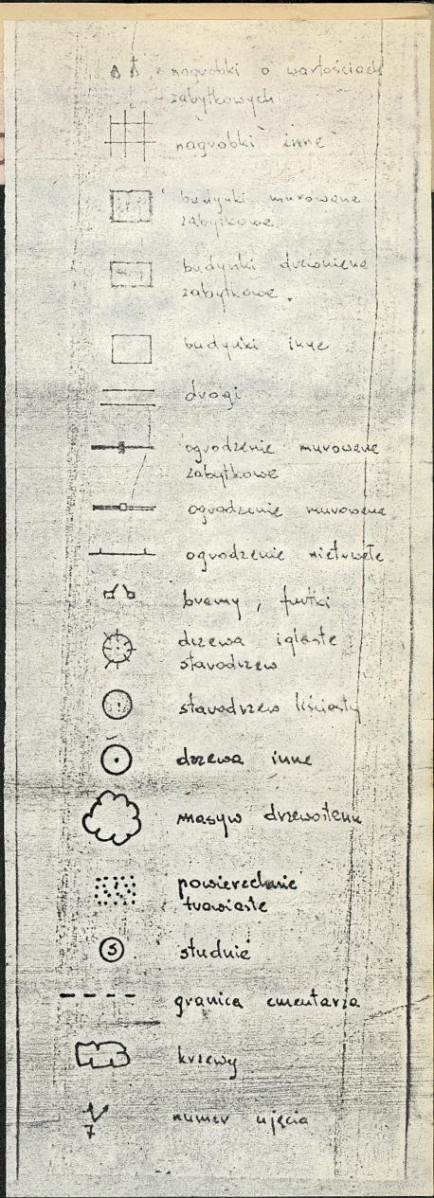 nagrobki o wartościach
zabytkowych
nagrobki inne
budynki murowane
zabytkowe
budynki drewniane
zabytkowe.
budynki inne
drogi
ogrodzenie murowane
zabytkowe
ogrodzenie murowane
ogrodzenie nietrwałe
bramy, furtki
drzewa iglaste
starodrzew
starodrzew liściasty
drzewa inne
masyw drzewostanu
powierzchnie
trawiaste
S studnie
granica cmentarza
krzewy
7 numer ujęcia